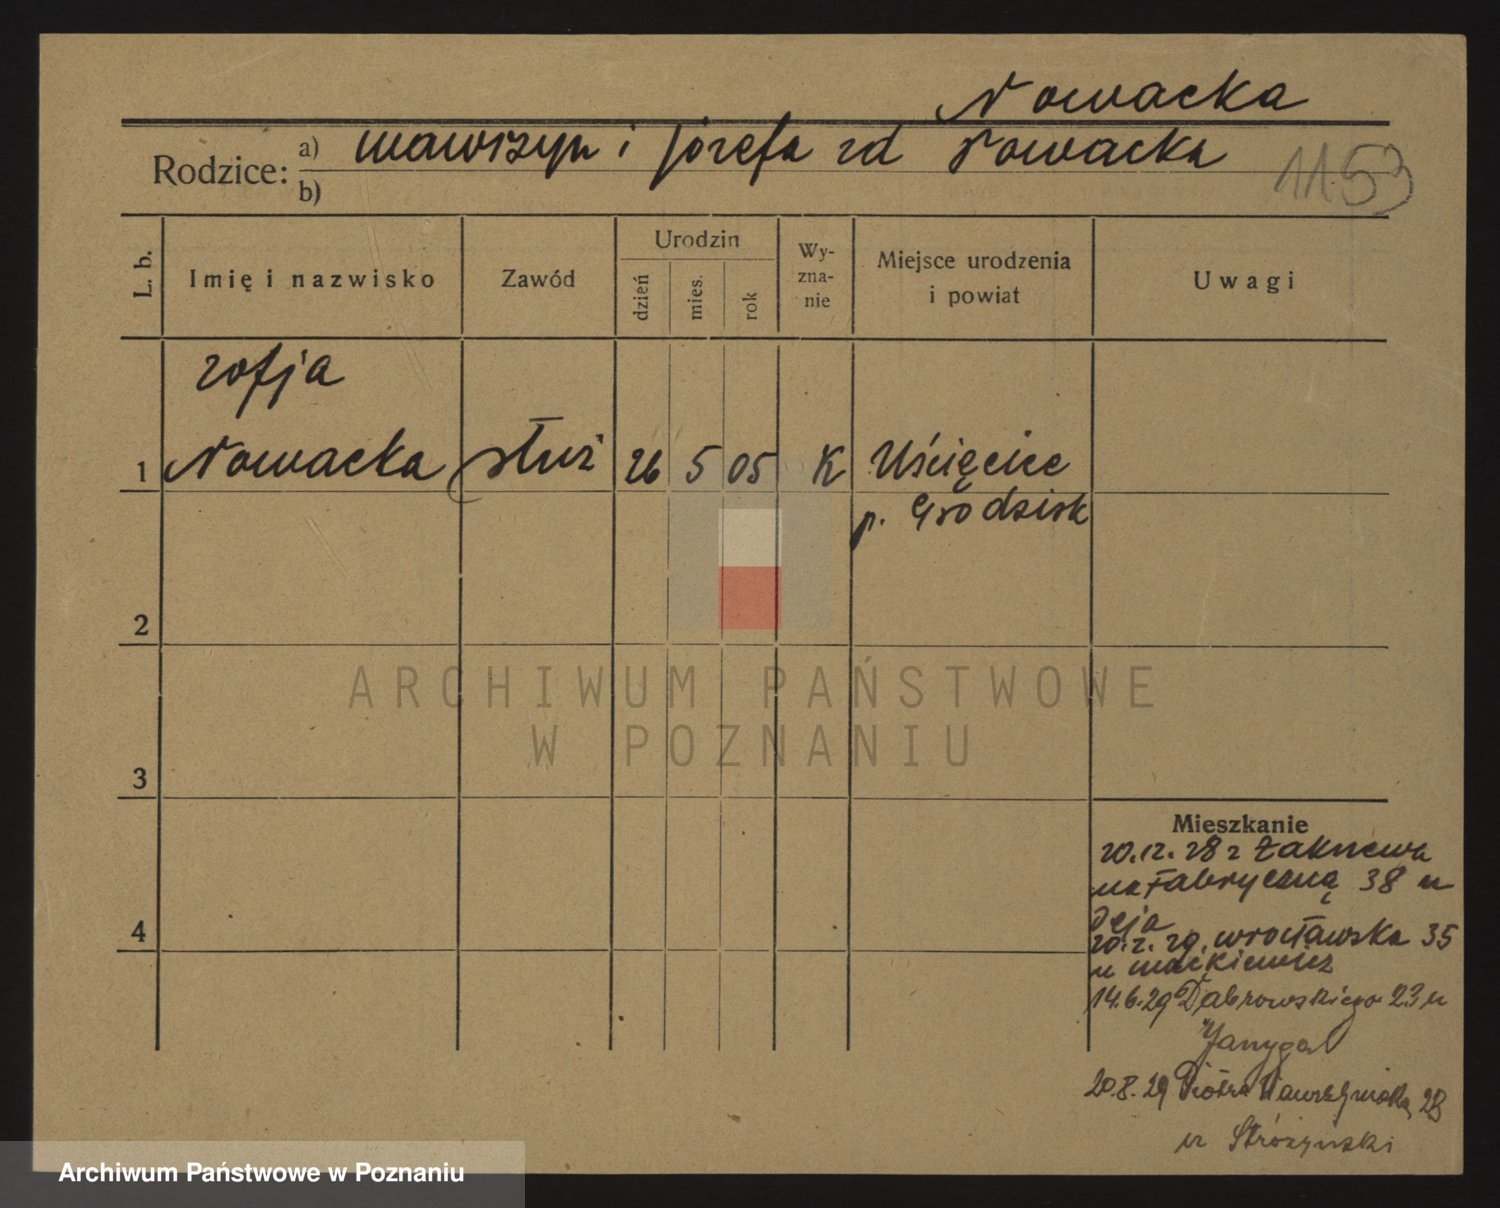 Nowacka
Rodzice: a) Wawrzyn i Józefa zd Nowacka
b)
1153
L. b.
Imię i nazwisko
Zawód
Urodzin
dzień
mies.
rok
Wy-
zna-
nie
Miejsce urodzenia
i powiat
Uwagi
Zofja
1 Nowacka służ 26 5 05 K Uścięcice
p. Grodzisk
2
3
4
ARCHIWUM PAŃSTWOWE
W POZNANIU
Mieszkanie
20.12.28 z
na Fabryczną 38 u
Deja
20.2.29. Wrocławska 35
u Maćkiewicz
14.6.29 Dąbrowskiego 23 u
20.8.29 Piotra Wawrzyniaka 28
u Stróżyński
Archiwum Państwowe w Poznaniu